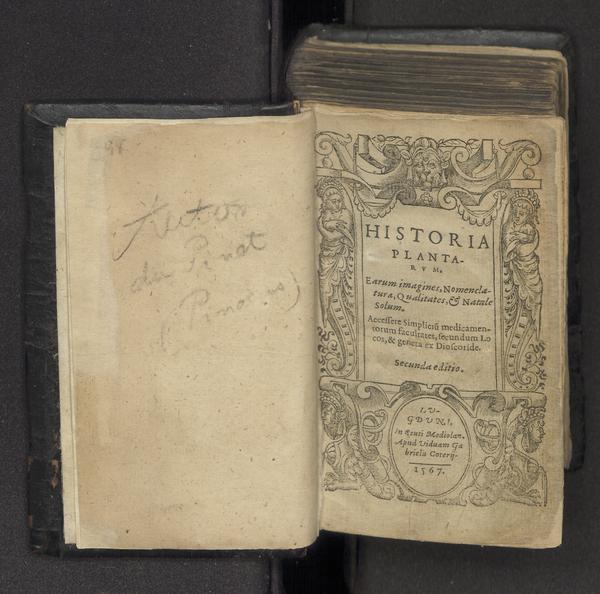 98
Autor
du Pinet
(Pinetus)
HISTORIA
PLANTA-
RVM.
Earum imagines, Nomencla-
tura, Qualitates, & Natale
Solum.
Accessere Simpliciũ medicamen-
torum facultates, secundum Lo
cos, & genera ex Dioscoride.
Secunda editio.
LV-
GDVNI,
In scuti Mediolan.
Apud Viduam Ga
brielis Coterij.
1567.